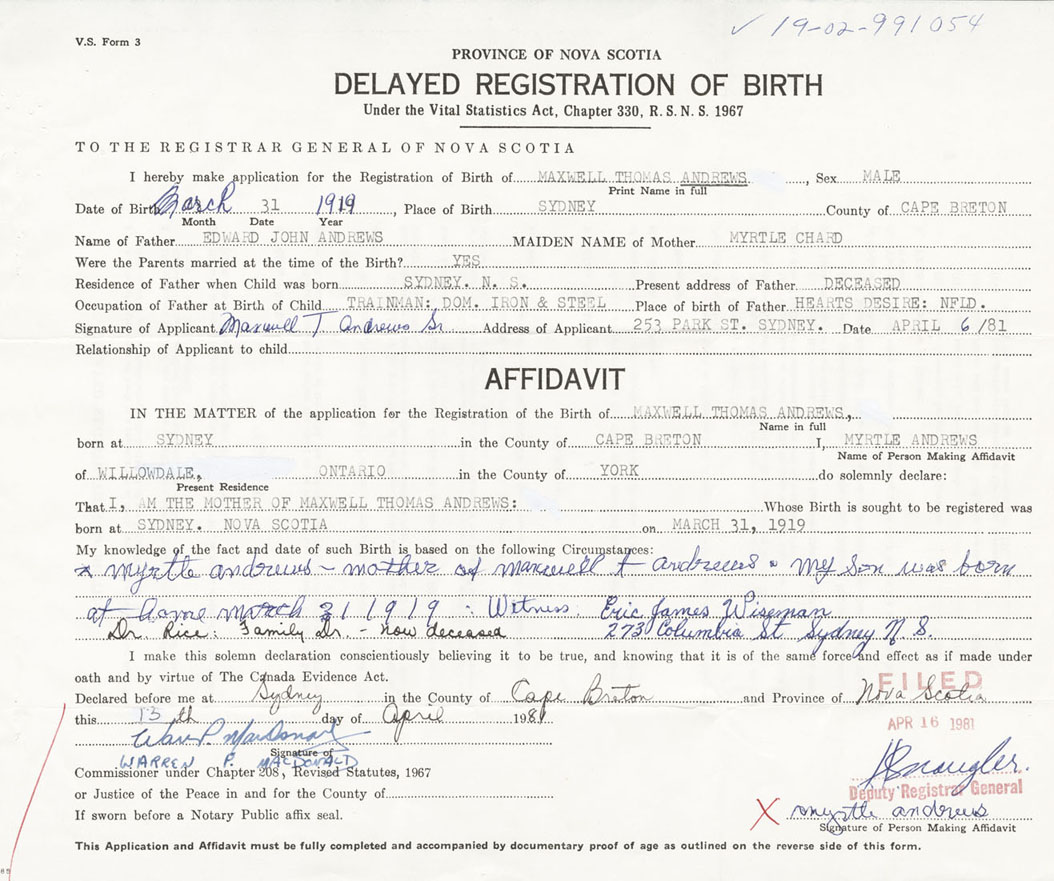 ✓ 19-02-991054
V.S. Form 3
PROVINCE OF NOVA SCOTIA
DELAYED REGISTRATION OF BIRTH
Under the Vital Statistics Act, Chapter 330, R. S. N. S. 1967
TO THE REGISTRAR GENERAL OF NOVA SCOTIA
I hereby make application for the Registration of Birth of MAXWELL THOMAS ANDREWS, Sex MALE
Print Name in full
Date of Birth March 31 1919, Place of Birth SYDNEY County of CAPE BRETON
Month Date Year
Name of Father EDWARD JOHN ANDREWS MAIDEN NAME of Mother MYRTLE CHARD
Were the Parents married at the time of the Birth? YES
Residence of Father when Child was born SYDNEY. N. S. Present address of Father DECEASED
Occupation of Father at Birth of Child TRAINMAN: DOM. IRON & STEEL Place of birth of Father HEARTS DESIRE: NFLD.
Signature of Applicant Maxwell T. Andrews Sr Address of Applicant 253 PARK ST. SYDNEY. Date APRIL 6/81
Relationship of Applicant to child
AFFIDAVIT
IN THE MATTER of the application for the Registration of the Birth of MAXWELL THOMAS ANDREWS,
Name in full
born at SYDNEY in the County of CAPE BRETON I, MYRTLE ANDREWS
Name of Person Making Affidavit
of WILLOWDALE, ONTARIO in the County of YORK do solemnly declare:
Present Residence
That I, AM THE MOTHER OF MAXWELL THOMAS ANDREWS: Whose Birth is sought to be registered was
born at SYDNEY. NOVA SCOTIA on MARCH 31, 1919
My knowledge of the fact and date of such Birth is based on the following Circumstances:
x myrtle andrews - mother of maxwell t andrews - my son was born
at home march 31 1919 : Witness: Eric James Wiseman
Dr. Rice: Family Dr. - now deceased 273 Columbia St Sydney N.S.
I make this solemn declaration conscientiously believing it to be true, and knowing that it is of the same force and effect as if made under
oath and by virtue of The Canada Evidence Act.
FILED
Declared before me at Sydney in the County of Cape Breton and Province of Nova Scotia
this 13th day of April 1981
APR 16 1981
Warren P. MacDonald
Signature of
WARREN P. MACDONALD
Commissioner under Chapter 208, Revised Statutes, 1967
Deputy Registrar General
or Justice of the Peace in and for the County of
X myrtle andrews
If sworn before a Notary Public affix seal.
Signature of Person Making Affidavit
This Application and Affidavit must be fully completed and accompanied by documentary proof of age as outlined on the reverse side of this form.